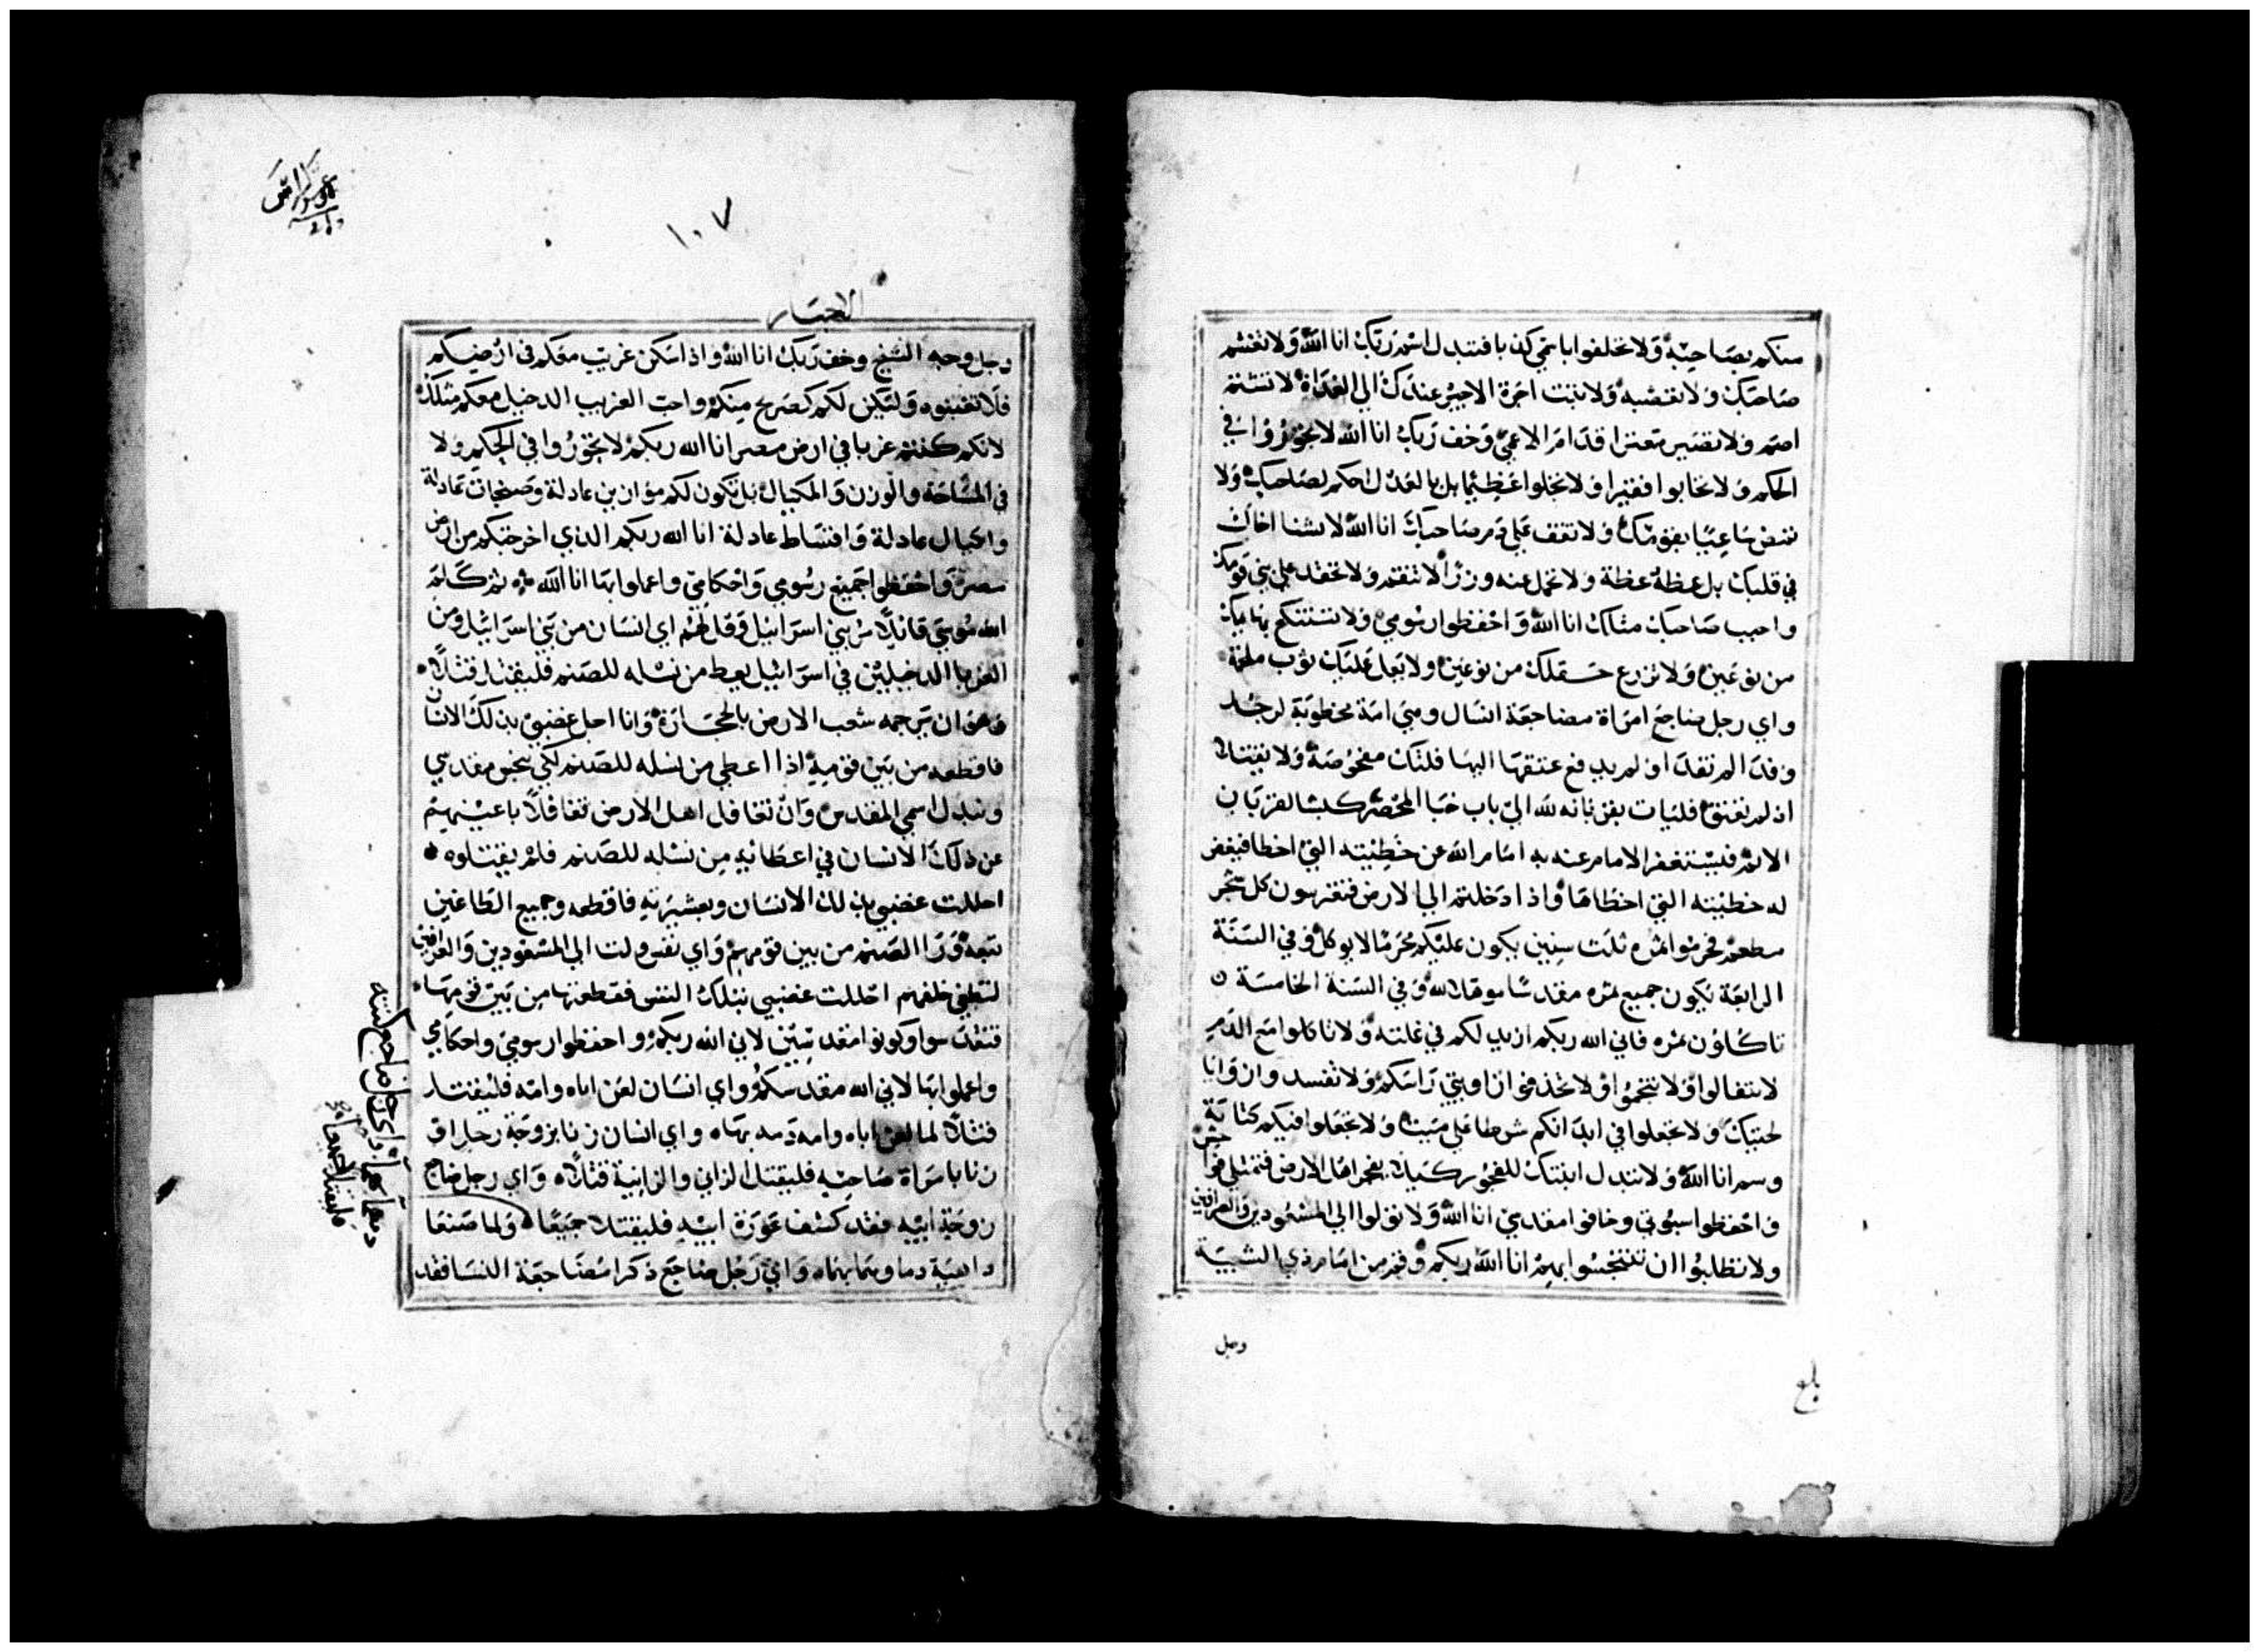 منكم بصاحبه ولا تحلفوا باسمي كذبا فتبدل اسم ربك انا الله ولا تغشم
صاحبك ولا تغصبه ولا تبت اجرة الاجير عندك الي الغداة لا تشتم
اصم ولا تصير متعثرا قدام الاعمي وخف ربك انا الله لا تجوروا في
الحكم ولا تحابوا فقيرا ولا تجلوا عظيما بل بالعدل احكم لصاحبك ولا
تمض ساعيا بقومك ولا تقف علي دم صاحبك انا الله لا تشنا اخاك
في قلبك بل عظه عظة ولا تحمل عنه وزرا لا تنقم ولا تحقد علي بني قومك
واحبب صاحبك مثلك انا الله واحفظوا رسومي ولا تستنتكح بهايمك
من نوعين ولا تزرع حقلك من نوعين ولا تجعل عليك ثوب ملحمة
واي رجل يضاجع امراة مضاجعة انسال وهي امة مخطوبة لرجل
وفدا لم تفدا او لم يدفع عتقها اليها فلتكن مفحوصة ولا يقتلا
اذ لم تعتق فليات بقربانه لله الي باب خبا المحضر كبشا لقربان
الاثم فيستغفر الامام عنه به امام الله عن خطيته التي اخطا فيغفر
له خطيته التي اخطاها واذا دخلتم الي الارض فتغرسون كل شجر
مطعم فحرموا ثمره ثلث سنين يكون عليكم محرما لا يوكل وفي السنة
الرابعة يكون جميع ثمره مقدسا لله وفي السنة الخامسة
تاكلون ثمره فاني الله ربكم ازيد لكم في غلته ولا تاكلوا مع الدم
لا تتفالوا ولا تنجموا ولا تحذفوا زاويتي راسكم ولا تفسد زوايا
لحيتك ولا تجعلوا في ابدانكم شرطا علي ميت ولا تجعلوا فيكم كتابة
وسم انا الله ولا تبدل ابنتك للفجور كيلا يفجر اهل الارض فتمتلي فواحش
واحفظوا سبوتي وخافوا مقدسي انا الله ولا تولوا الي المشعوذين والعرافين
ولا تطلبوا ان تتنجسوا بهم انا الله ربكم وقم من امام ذي الشيبة
وجل
بلغ
١٠٧
الاحبار
وجل وجه الشيخ وخف ربك انا الله واذا سكن غريب معكم في ارضيكم
فلا تغبنوه وليكن لكم كصريح منكم واحب الغريب الدخيل معكم مثلك
لانكم كنتم غربا في ارض مصر انا الله ربكم لا تجوروا في الحكم ولا
في المساحة والوزن والمكيال بل تكون لكم موازين عادلة وصنجات عادلة
واكيال عادلة واقساط عادلة انا الله ربكم الذي اخرجتكم من ارض
مصر واحفظوا جميع رسومي واحكامي واعملوا بها انا الله ثم كلم
الله موسي قايلا مر بني اسراييل وقل لهم اي انسان من بني اسراييل ومن
الغربا الدخيلين في اسراييل يعط من نسله للصنم فليقتل قتلا
وهو ان يرجمه شعب الارض بالحجارة وانا احل غضبي بذلك الانسان
فاقطعه من بين قومه اذ اعطي من نسله للصنم لكي ينجس مقدسي
وبتدل اسمي المقدس وان تغافل اهل الارض تغافلا باعينهم
عن ذلك الانسان في اعطايه من نسله للصنم فلم يقتلوه
احللت غضبي بذلك الانسان وبعشيرته فاقطعه وجميع الطاغين
تبعه ورا الصنم من بين قومهم واي نفس ولت الي المشعوذين والعرافين
لتطغي خلفهم احللت غضبي بتلك النفس فقطعتها من بين قومها
فتقدسوا وكونوا مقدسين لاني الله ربكم واحفظوا رسومي واحكامي
واعملوا بها لاني الله مقدسكم واي انسان لعن اباه وامه فليقتل
قتلا لما لعن اباه وامه دمه بهاه واي انسان زنا بزوجة رجل او
زنا بامراة صاحبه فليقتل الزاني والزانية قتلا واي رجل ضاجع
زوجة ابيه فقد كشف عورة ابيه فليقتلا جميعا ولما صنعا
داهية دماوهما بهماه واي رجل ضاجع ذكرا مضاجعة النسا فقد
واي رجل ضاجع كنته